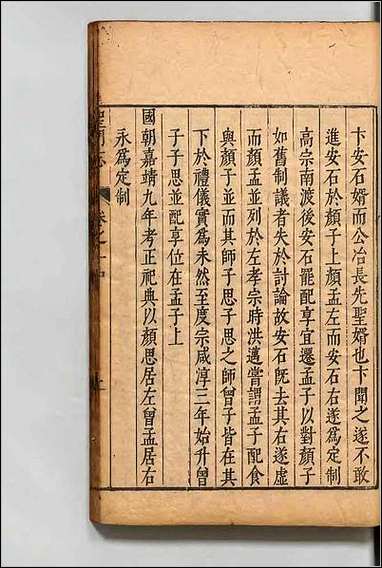 卞安石婿而公冶長先聖婿也卞聞之遂不敢
進安石於顏子上顏孟左而安石右遂爲定制
高宗南渡後安石罷配享宜遷孟子以對顏子
如舊制議者失於討論故安石旣去其右遂虛
而顏孟並列於左孝宗時洪邁嘗謂孟子配食
與顏子並而其師子思子思之師曾子皆在其
下於禮儀實爲未然至度宗咸淳三年始升曾
子子思並配享位在孟子上
國朝嘉靖九年考正祀典以顏思居左曾孟居右
永爲定制
聖門志 卷之一中